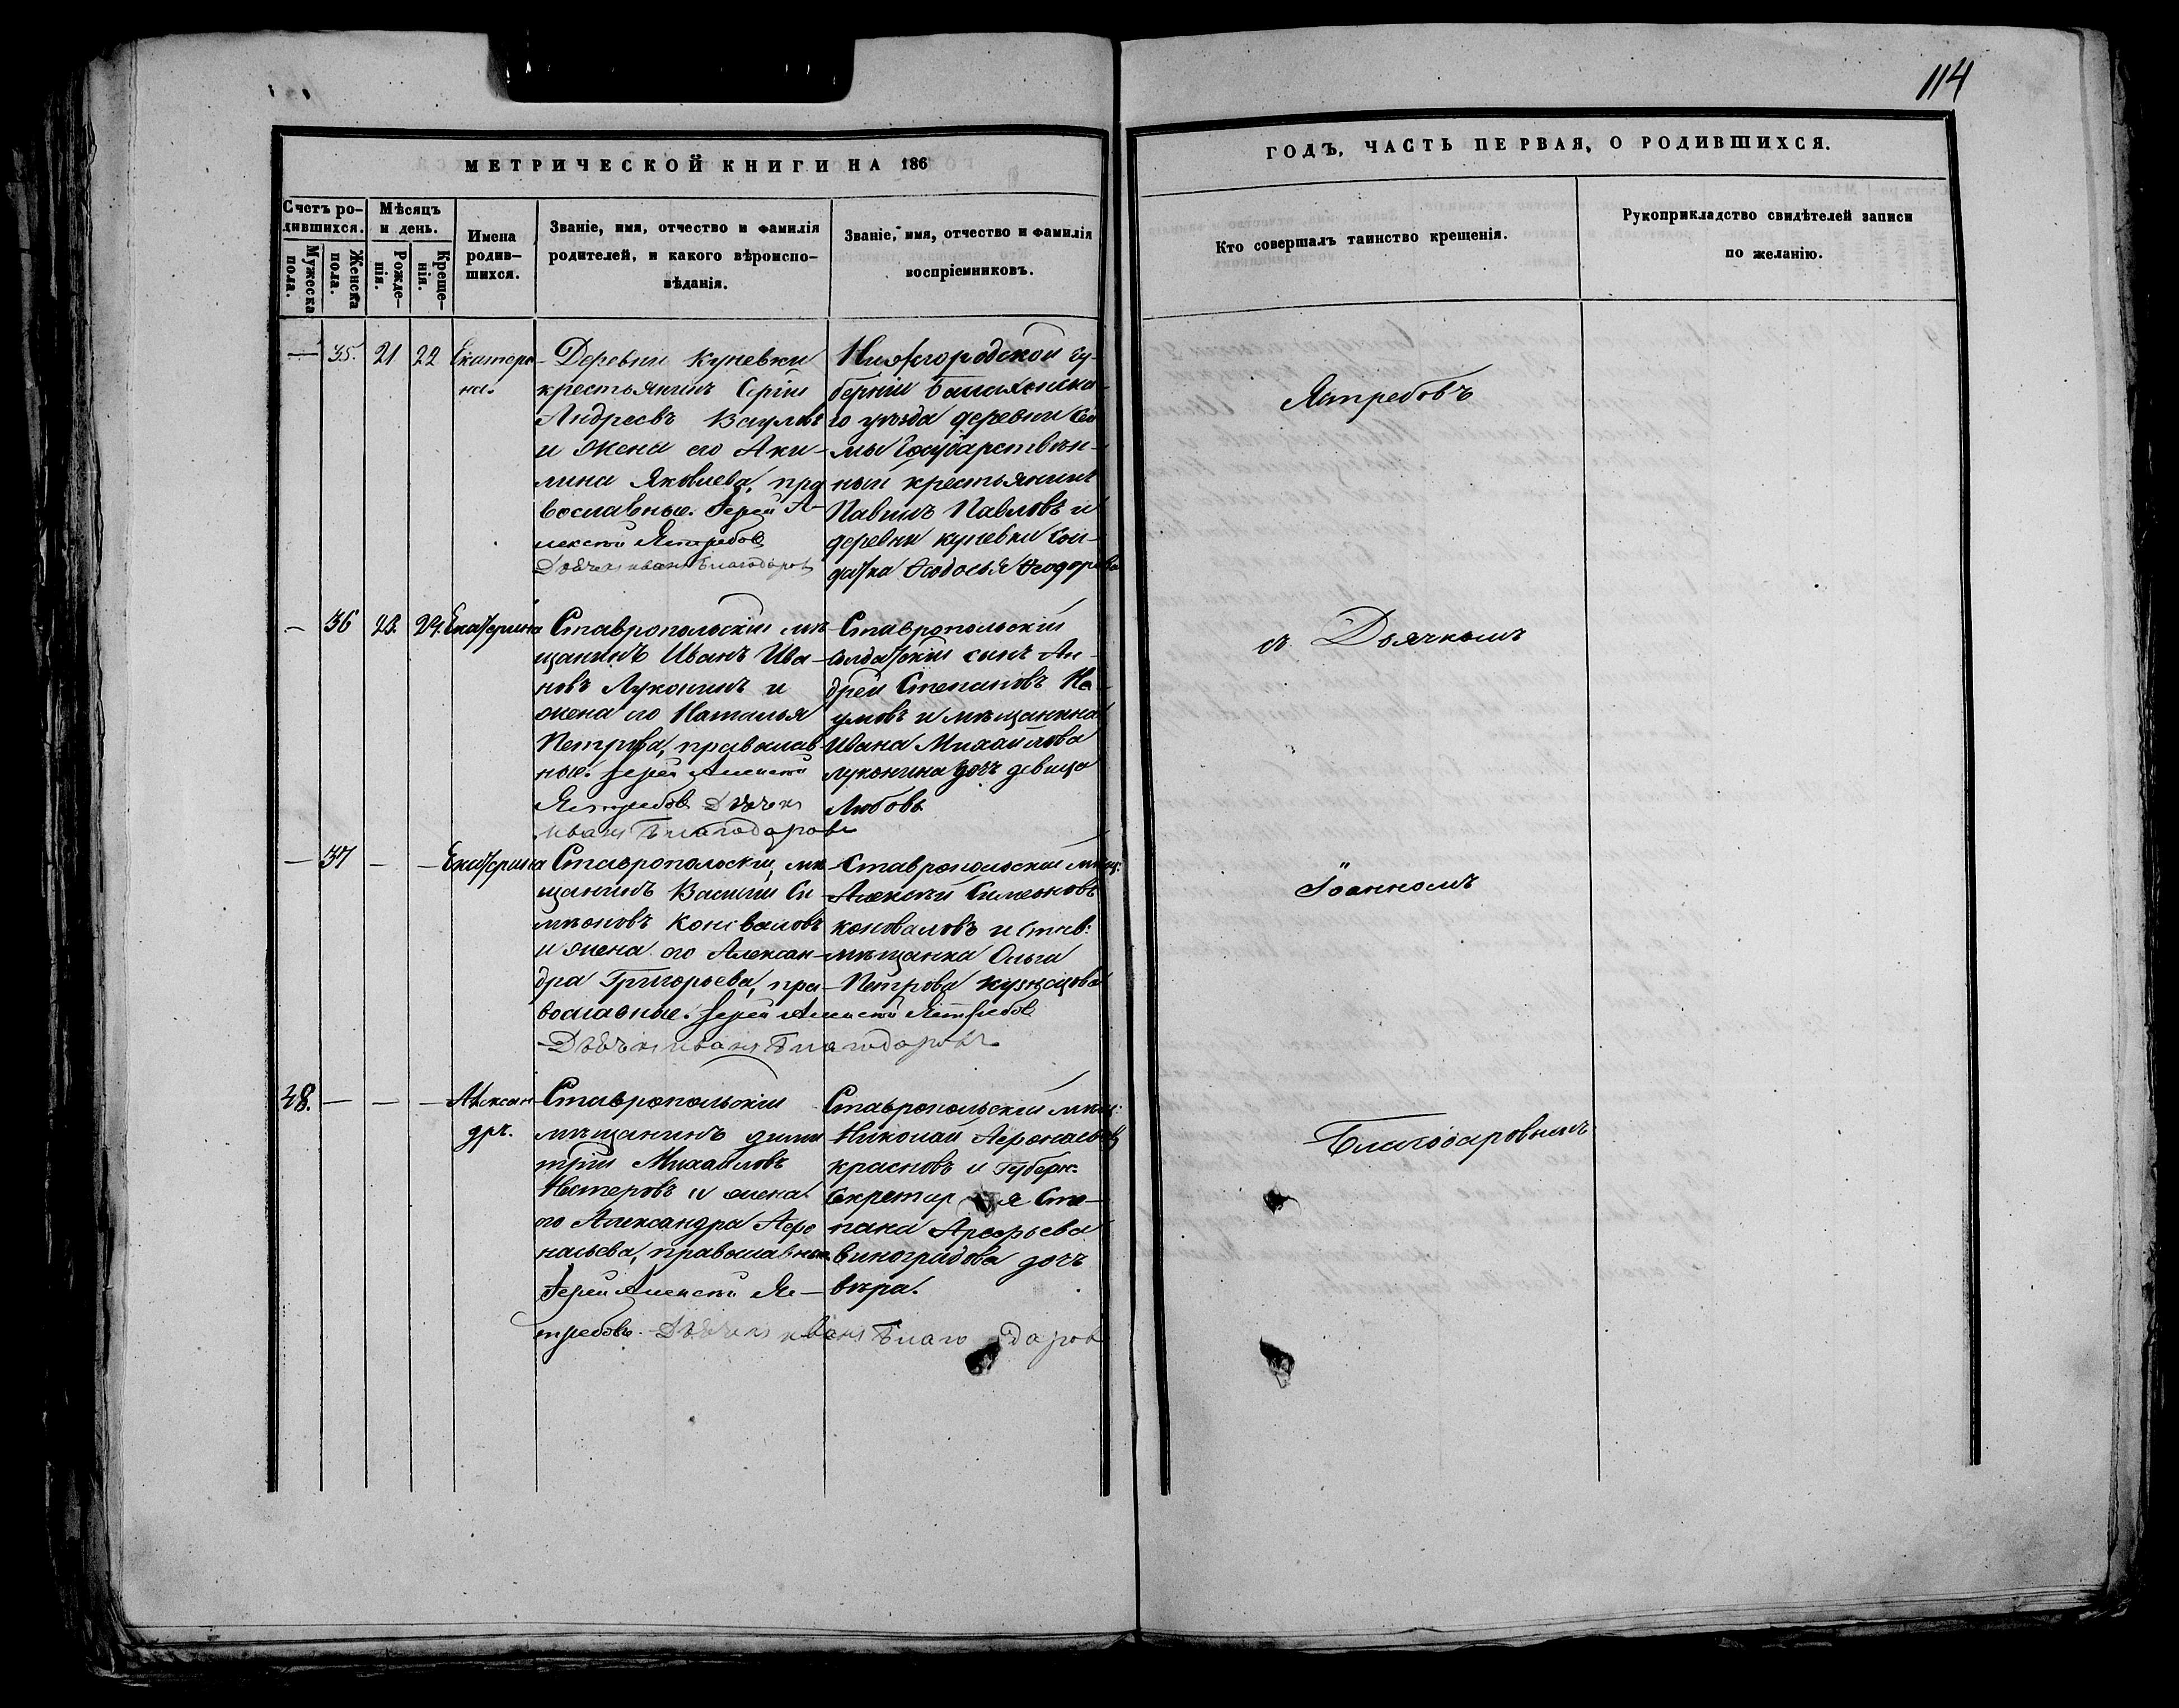 114
МЕТРИЧЕСКОЙ КНИГИ НА 186
ГОДЪ, ЧАСТЬ ПЕРВАЯ, О РОДИВШИХСЯ.
Счетъ ро-
дившихся.
Мужеска
пола.
Женска
пола.
Мѣсяцъ
и день.
Рожде-
нія.
Креще-
нія.
Имена
родив-
шихся.
Званіе, имя, отчество и фамилія
родителей, и какого вѣроиспо-
вѣданія.
Званіе, имя, отчество и фамилія
воспріемниковъ.
Кто совершалъ таинство крещенія.
Рукоприкладство свидѣтелей записи
по желанію.
— 35. 21 22 Екатери-
на.
Деревни Куневки
крестьянинъ Сергій
Андреевъ Ваулинъ
и жена его Аки-
лина Яковлева, пра
вославные. Іерей А-
лексѣй Ястребовъ
Дьячекъ иванъ Благодаровъ
Нижегородской гу-
берніи Балахонска-
го уѣзда деревни
мы Государствен-
ный крестьянинъ
Павелъ Павловъ и
деревни куневки Сол-
датка Ѳедосья Ѳеодорова
Ястребовъ
— 36 23. 24. Екатерина
Ставропольскій мѣ-
щанинъ Иванъ Ива-
новъ Луконинъ и
жена его Наталья
Петрова, православ-
ные. Іерей Алексѣй
Ястребовъ Дьячекъ
иванъ Благодаровъ
Ставропольскій
солдатскій сынъ Ан-
дрей Степановъ На-
умовъ и мѣщанина
Ивана Михайлова
луконина дочь девица
Любовь
съ Дьячкомъ
— 37 — — Екатерина
Ставропольскій мѣ-
щанинъ Василій Си-
меоновъ Коноваловъ
и жена его Алексан-
дра Григорьева, пра-
вославные. Іерей Алексѣй Ястребовъ
Дьячекъ иванъ Благодаровъ
Ставропольскій мѣщ:
Алексѣй Симеоновъ
коноваловъ и став:
мѣщанка Ольга
Петрова кузнецова
Іоанномъ
38. — — — Алексан-
дръ.
Ставропольскій
мѣщанинъ дими
трій Михайловъ
Нестеровъ и жена
его Александра Афо
насьева, православные.
Іерей Алексѣй Яс-
требовъ. Дьячекъ иванъ Благодаровъ
Ставропольскій мѣщ:
Николай Афонасьевъ
красновъ и Губерн.
Секретаря Сте-
пана Арефьева
Виноградова дочь
вѣра.
Благодаровымъ